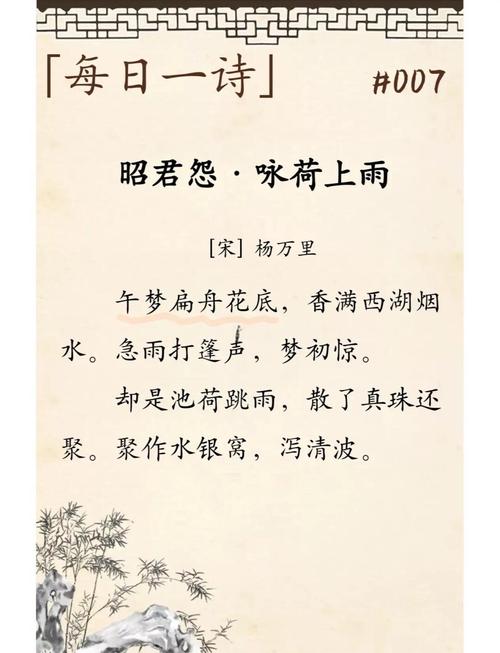 「每日一诗」 #007
昭君怨·咏荷上雨
[宋] 杨万里
午梦扁舟花底，香满西湖烟
水。急雨打篷声，梦初惊。
却是池荷跳雨，散了真珠还
聚。聚作水银窝，泻清波。